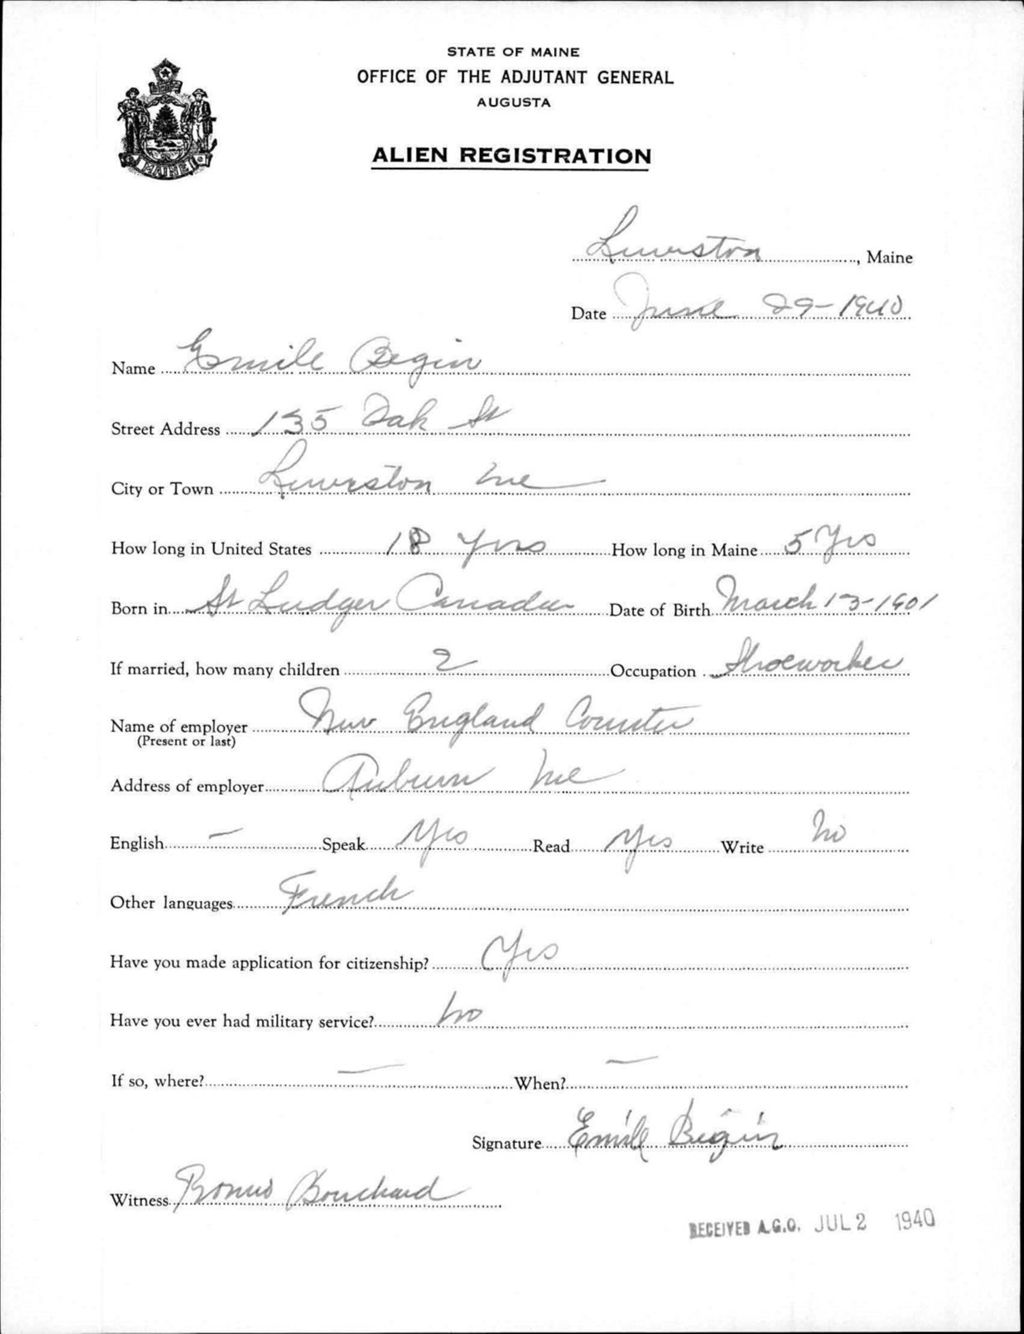 STATE OF MAINE
OFFICE OF THE ADJUTANT GENERAL
AUGUSTA
ALIEN REGISTRATION
MAINE
Lewiston, Maine
Date June 29-1940
Name Emile Begin
Street Address 135 Oak St
City or Town Lewiston Me
How long in United States 18 Yrs How long in Maine 5 Yrs
Born in St Ludger Canada Date of Birth March 13-1901
If married, how many children 2 Occupation Shoeworker
Name of employer New England Counter
(Present or last)
Address of employer Auburn Me
English — Speak Yes Read Yes Write No
Other languages French
Have you made application for citizenship? Yes
Have you ever had military service? No
If so, where? — When? —
Signature Emile Begin
Witness Bouchard
RECEIVED A.G.O. JUL 2 1940